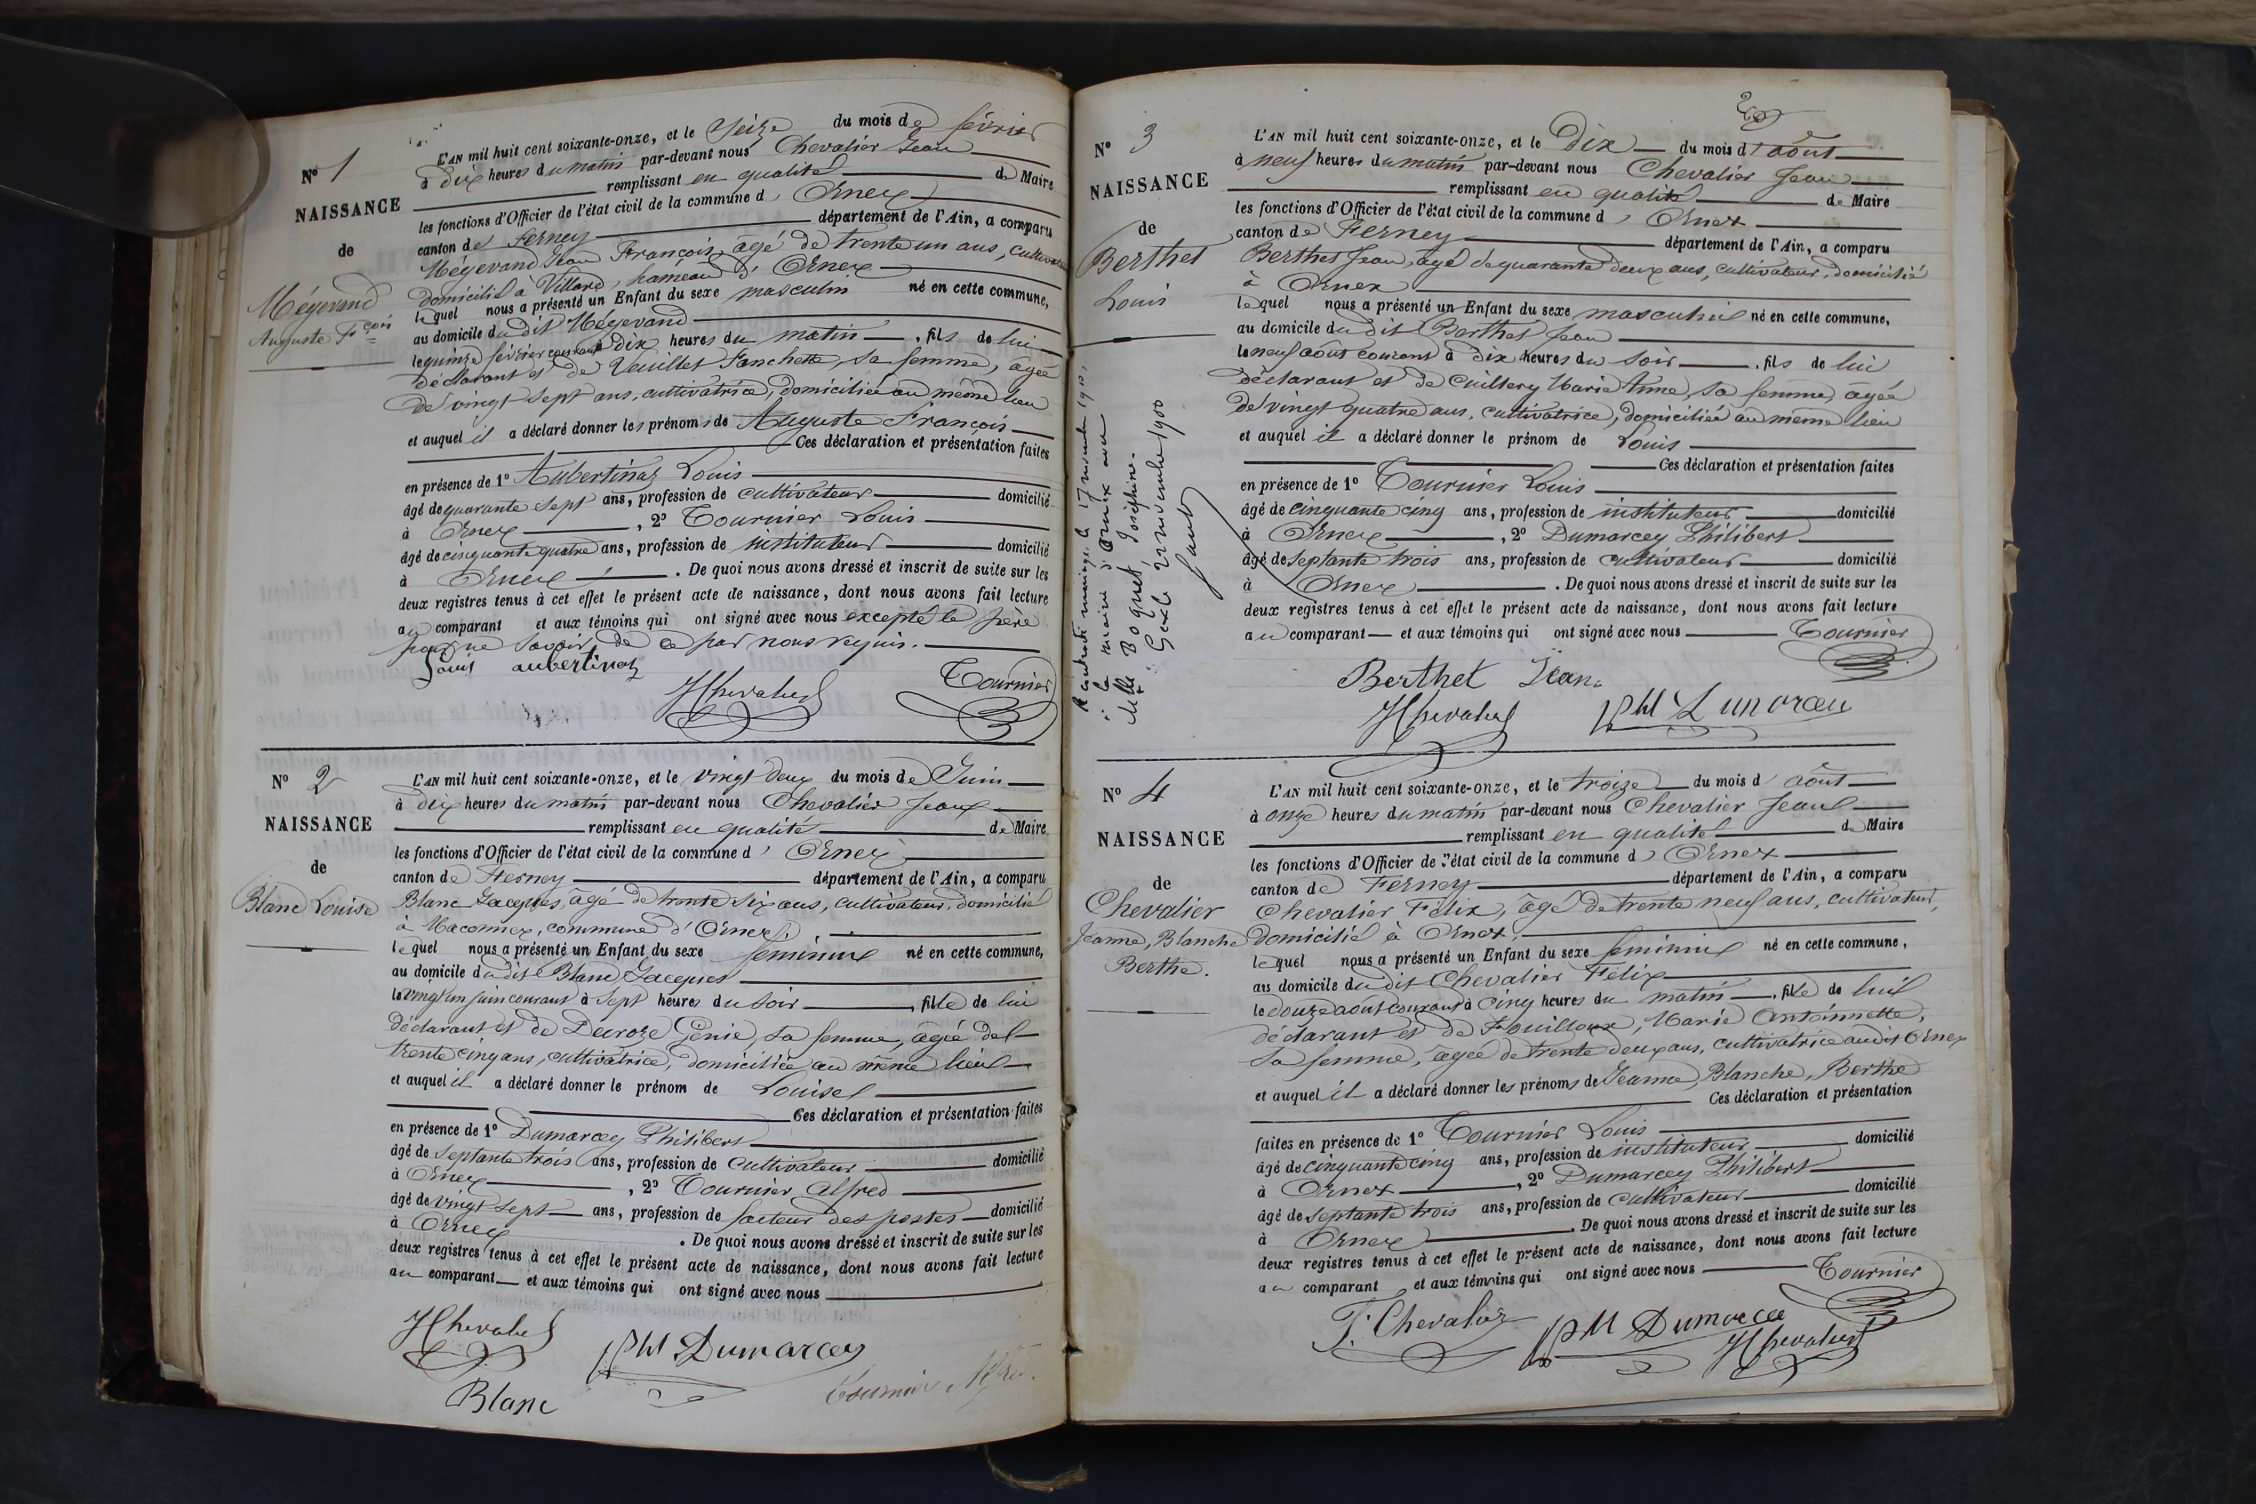 N° 1
NAISSANCE
de
Mégevand
Auguste Fçois
L'AN mil huit cent soixante-onze, et le seize du mois de février
à dix heures du matin par-devant nous Chevalier Jean
remplissant en qualité de Maire
les fonctions d'Officier de l'état civil de la commune d' Ornex
canton de Ferney département de l'Ain, a comparu
Mégevand Jean François, âgé de trente un ans, cultivateur
domicilié à Villard, hameau d' Ornex
lequel nous a présenté un Enfant du sexe masculin né en cette commune,
au domicile du dit Mégevand
le quinze février courant à dix heures du matin, fils de lui
déclarant et de Veuillet Fanchette, sa femme, âgée
de vingt sept ans, cultivatrice, domiciliée au même lieu
et auquel il a déclaré donner les prénoms de Auguste François
Ces déclaration et présentation faites
en présence de 1° Aubertinaz Louis
âgé de quarante sept ans, profession de cultivateur domicilié
à Ornex, 2° Tournier Louis
âgé de cinquante quatre ans, profession de instituteur domicilié
à Ornex. De quoi nous avons dressé et inscrit de suite sur les
deux registres tenus à cet effet le présent acte de naissance, dont nous avons fait lecture
au comparant et aux témoins qui ont signé avec nous excepté le père
pour ne savoir de ce par nous requis.
Louis aubertinaz
JChevalier
Tournier
N° 2
NAISSANCE
de
Blanc Louise
L'AN mil huit cent soixante-onze, et le vingt deux du mois de Juin
à dix heures du matin par-devant nous Chevalier Jean
remplissant en qualité de Maire
les fonctions d'Officier de l'état civil de la commune d' Ornex
canton de Ferney département de l'Ain, a comparu
Blanc Jacques, âgé de trente six ans, cultivateur, domicilié
à Maconnex, commune d' Ornex
lequel nous a présenté un Enfant du sexe féminin né en cette commune,
au domicile du dit Blanc Jacques
le vingt un juin courant à sept heures du soir, fille de lui
déclarant et de Decroze Génie, sa femme, âgée de
trente cinq ans, cultivatrice, domiciliée au même lieu
et auquel il a déclaré donner le prénom de Louise
Ces déclaration et présentation faites
en présence de 1° Dumarcey Philibert
âgé de septante trois ans, profession de cultivateur domicilié
à Ornex, 2° Tournier Alfred
âgé de vingt sept ans, profession de facteur des postes domicilié
à Ornex. De quoi nous avons dressé et inscrit de suite sur les
deux registres tenus à cet effet le présent acte de naissance, dont nous avons fait lecture
au comparant et aux témoins qui ont signé avec nous
JChevalier
Phl Dumarcey
Tournier Alfred
Blanc
N° 3
NAISSANCE
de
Berthet
Louis
L'AN mil huit cent soixante-onze, et le Dix du mois d'août
à neuf heures du matin par-devant nous Chevalier Jean
remplissant en qualité de Maire
les fonctions d'Officier de l'état civil de la commune d' Ornex
canton de Ferney département de l'Ain, a comparu
Berthet Jean, âgé de quarante deux ans, cultivateur, domicilié
à Ornex
lequel nous a présenté un Enfant du sexe masculin né en cette commune,
au domicile du dit Berthet Jean
le neuf août courant à dix heures du soir, fils de lui
déclarant et de Cuillery Marie Anne, sa femme, âgée
de vingt quatre ans, cultivatrice, domiciliée au même lieu
et auquel il a déclaré donner le prénom de Louis
Ces déclaration et présentation faites
en présence de 1° Tournier Louis
âgé de cinquante cinq ans, profession de instituteur domicilié
à Ornex, 2° Dumarcey Philibert
âgé de septante trois ans, profession de cultivateur domicilié
à Ornex. De quoi nous avons dressé et inscrit de suite sur les
deux registres tenus à cet effet le présent acte de naissance, dont nous avons fait lecture
au comparant et aux témoins qui ont signé avec nous Tournier
Berthet Jean
JChevalier
A contracté mariage le 17 novembre 1900,
à la mairie d'Ornex avec
Melle Boquet Joséphine.
Gex le 22 novembre 1900
N° 4
NAISSANCE
de
Chevalier
Jeanne, Blanche
Berthe.
L'AN mil huit cent soixante-onze, et le treize du mois d' août
à onze heures du matin par-devant nous Chevalier Jean
remplissant en qualité de Maire
les fonctions d'Officier de l'état civil de la commune d' Ornex
canton de Ferney département de l'Ain, a comparu
Chevalier Félix, âgé de trente neuf ans, cultivateur,
domicilié à Ornex,
lequel nous a présenté un Enfant du sexe féminin né en cette commune,
au domicile du dit Chevalier Félix
le douze août courant à cinq heures du matin, fille de lui
déclarant et de Fouilloux, Marie Antoinette,
sa femme, âgée de trente deux ans, cultivatrice audit Ornex
et auquel il a déclaré donner les prénoms de Jeanne, Blanche, Berthe
Ces déclaration et présentation
faites en présence de 1° Tournier Louis
âgé de cinquante cinq ans, profession de instituteur domicilié
à Ornex, 2° Dumarcey Philibert
âgé de septante trois ans, profession de cultivateur domicilié
à Ornex. De quoi nous avons dressé et inscrit de suite sur les
deux registres tenus à cet effet le présent acte de naissance, dont nous avons fait lecture
au comparant et aux témoins qui ont signé avec nous Tournier
F. Chevalier
JChevalier